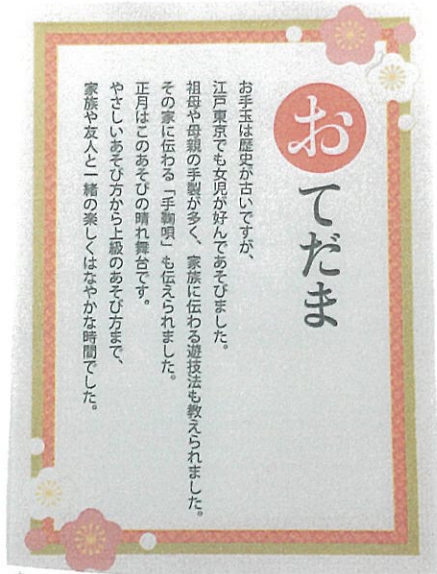 おてだま
お手玉は歴史が古いですが、
江戸東京でも女児が好んであそびました。
祖母や母親の手製が多く、家族に伝わる遊技法も教えられました。
その家に伝わる「手鞠唄」も伝えられました。
正月はこのあそびの晴れ舞台です。
やさしいあそび方から上級のあそび方まで、
家族や友人と一緒の楽しくはなやかな時間でした。